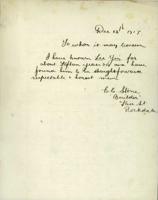 Dec 13th 1915
To whom it may concern
I have known Lee You for
about fifteen years & have
found him to be straightforward
respectable & honest man
C. C. Stone
Builder
St
Rockdale